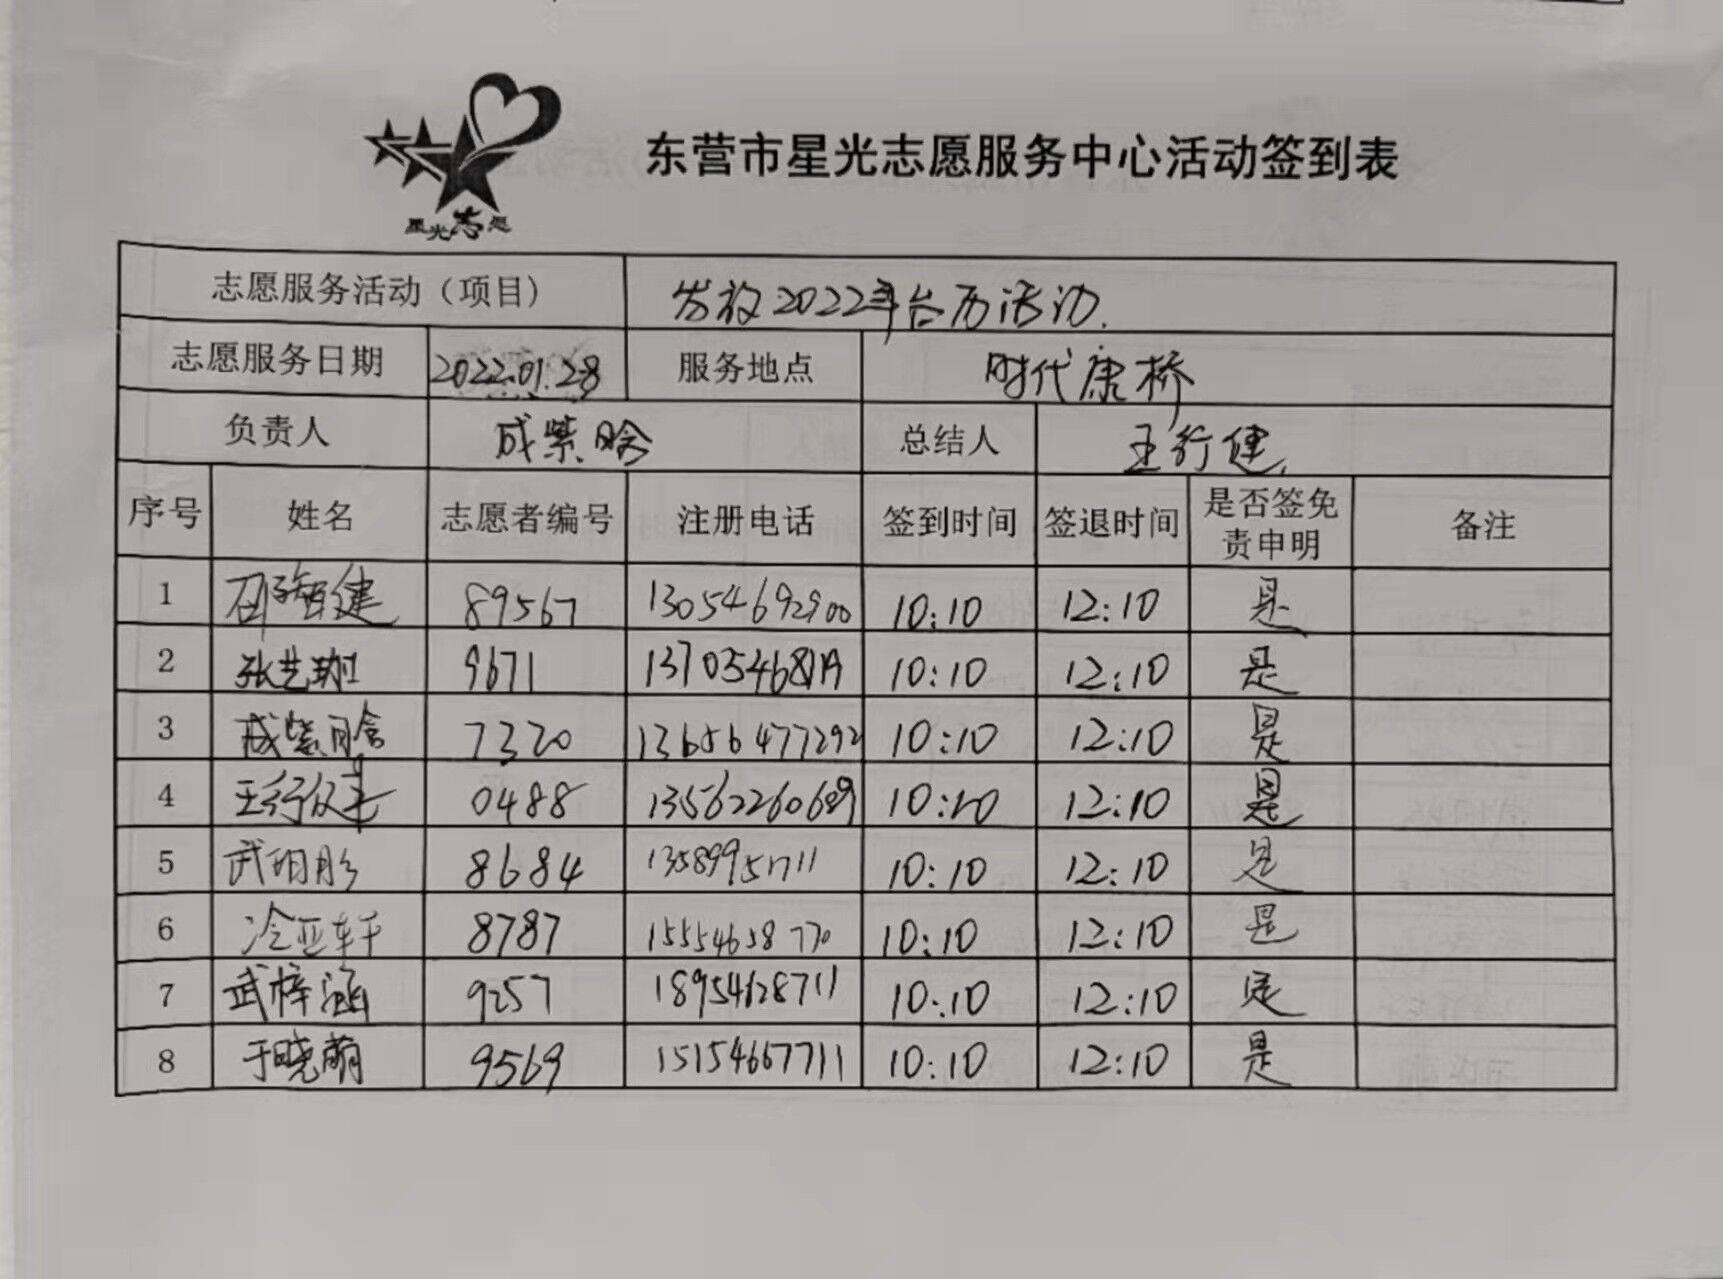 星光志愿
东营市星光志愿服务中心活动签到表
志愿服务活动（项目） 发放2022年台历活动.
志愿服务日期 2022.01.28 服务地点 时代康桥
负责人 成紫晗 总结人 王行健.
序号 姓名 志愿者编号 注册电话 签到时间 签退时间 是否签免责申明 备注
1 邵智健 89567 13054692900 10:10 12:10 是
2 9671 10:10 12:10 是
3 成紫晗 7320 13656477292 10:10 12:10 是
4 王行健 0488 13562260689 10:10 12:10 是
5 8684 13589951711 10:10 12:10 是
6 冷亚轩 8787 15554658770 10:10 12:10 是
7 武梓涵 9257 18954628711 10:10 12:10 是
8 于晓萌 9569 15154667711 10:10 12:10 是